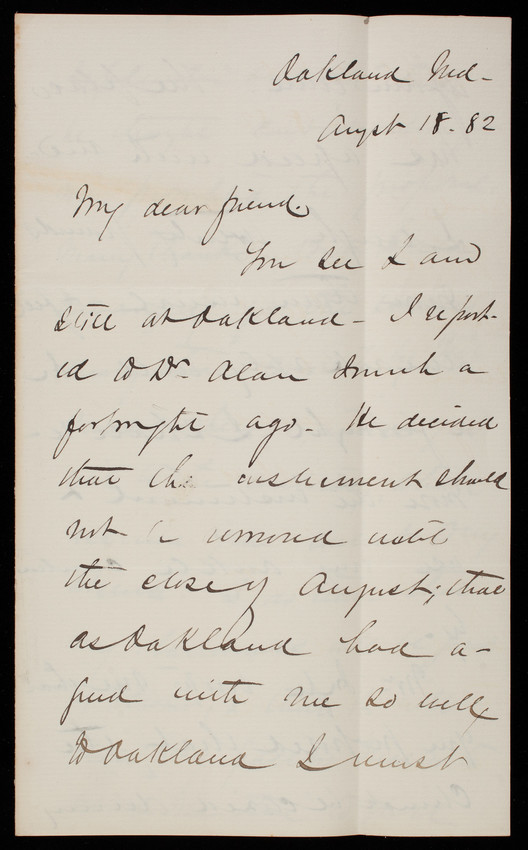 Oakland Md -
August 18. 82
My dear friend.
You see I am
still at Oakland - I report-
ed to Dr. Alan Smith a
fortnight ago. He decided
that the instrument should
not be removed until
the close of August; that
as Oakland had a-
greed with me so well,
to Oakland I must